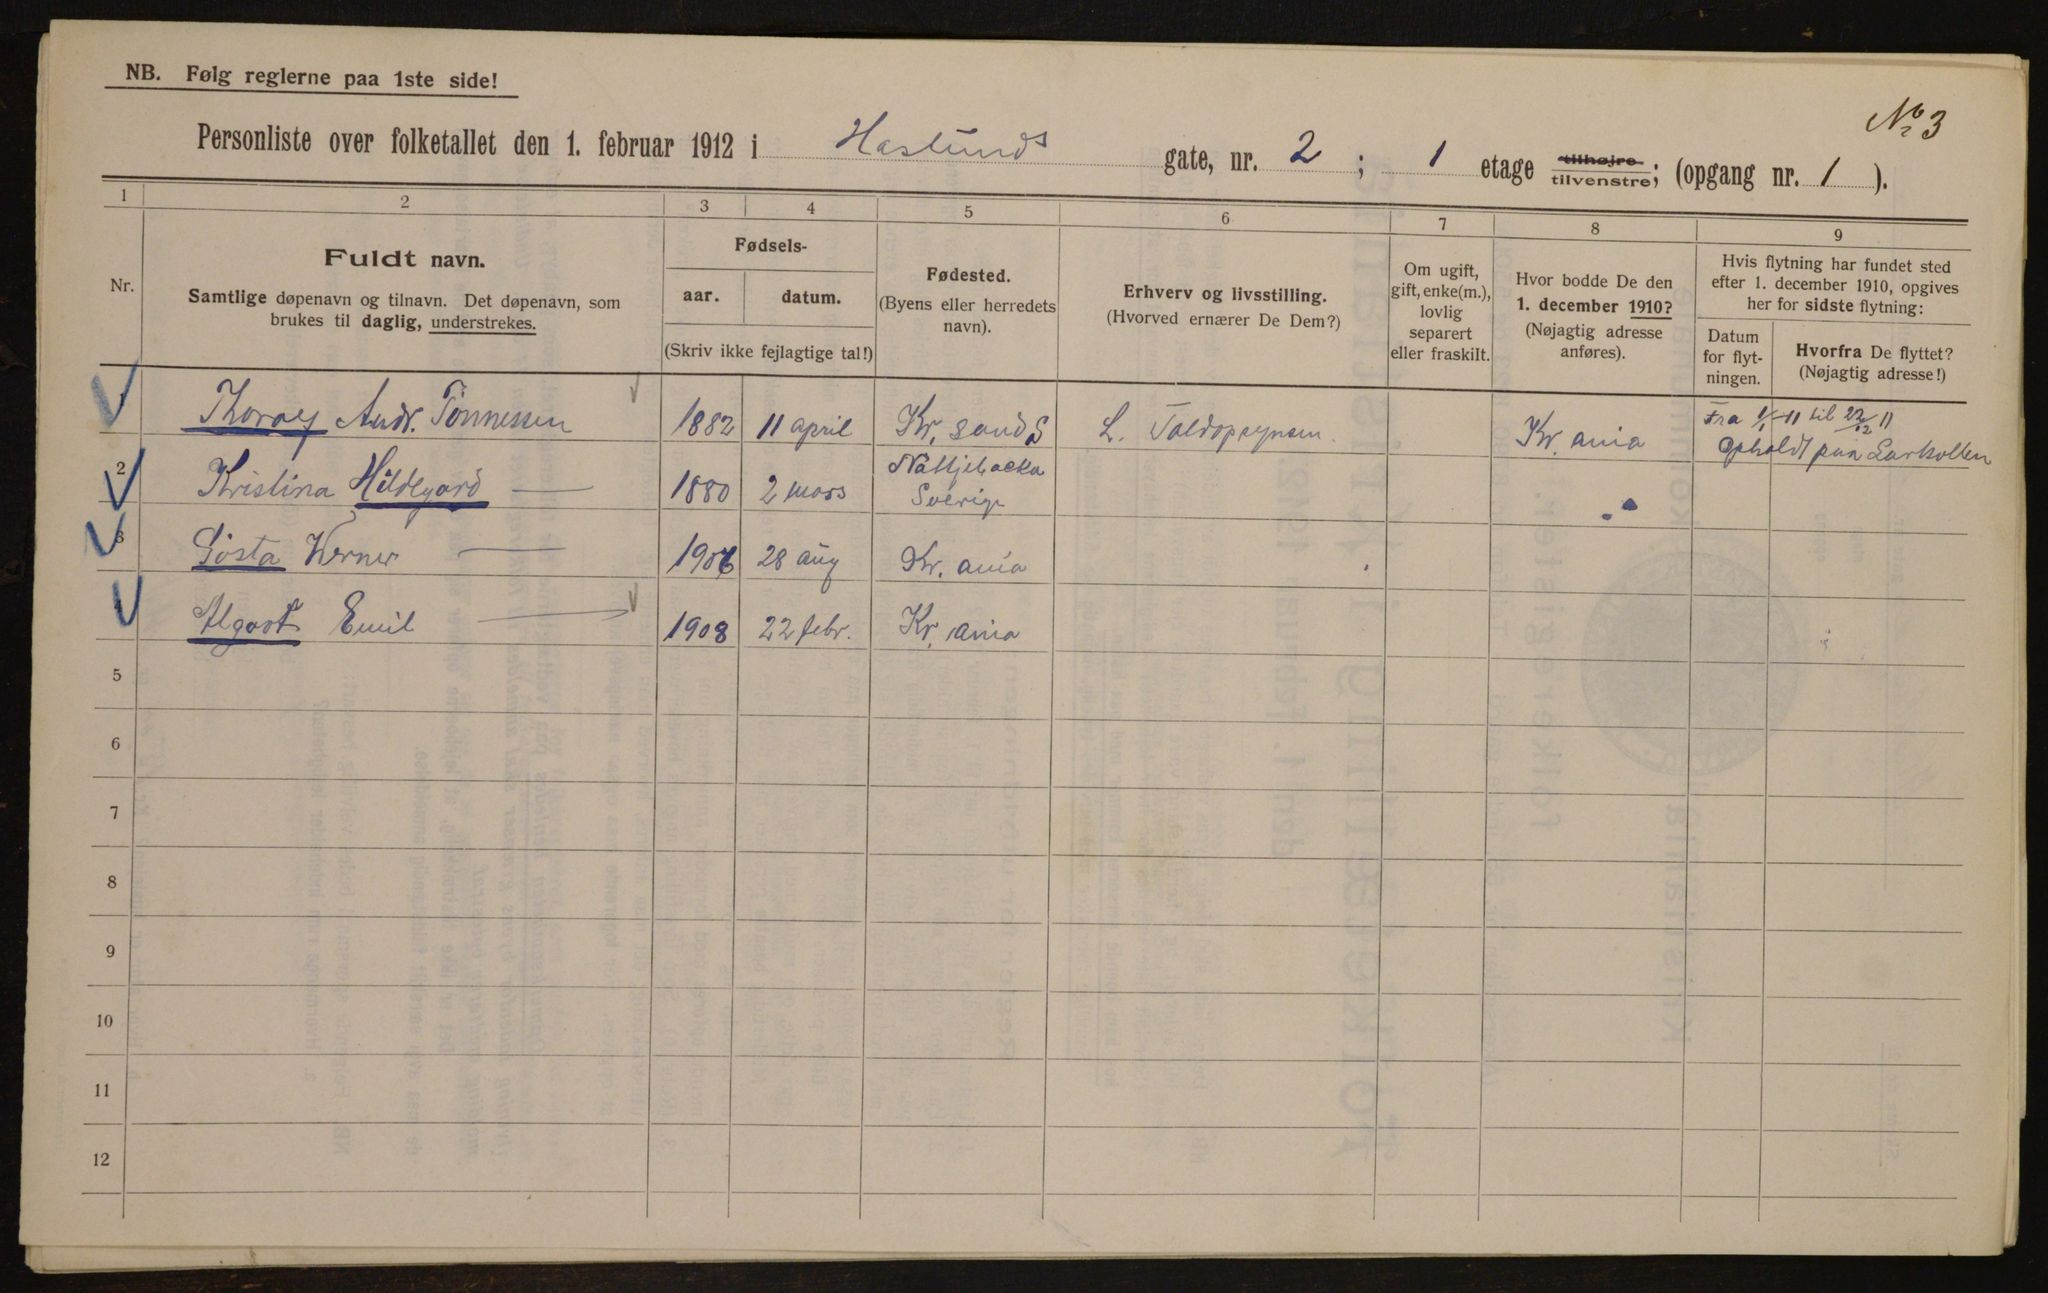 NB. Følg reglerne paa 1ste side!
No 3
Personliste over folketallet den 1. februar 1912 i Haslunds gate, nr. 2 ; 1 etage tilhøjre tilvenstre; (opgang nr. 1 ).
1 2 3 4 5 6 7 8 9
Nr.
Fuldt navn.
Samtlige døpenavn og tilnavn. Det døpenavn, som
brukes til daglig, understrekes.
Fødsels-
aar. datum.
(Skriv ikke fejlagtige tal!)
Fødested.
(Byens eller herredets
navn).
Erhverv og livsstilling.
(Hvorved ernærer De Dem?)
Om ugift,
gift, enke(m.),
lovlig
separert
eller fraskilt.
Hvor bodde De den
1. december 1910?
(Nøjagtig adresse
anføres).
Hvis flytning har fundet sted
efter 1. december 1910, opgives
her for sidste flytning:
Datum
for flyt-
ningen.
Hvorfra De flyttet?
(Nøjagtig adresse!)
1 Thoralf Andr. Tønnessen 1882 11 april Kr. sand S L. Toldopsynsm. Kr. ania Fra 1/1-11 til 22/12 11
Opholdt paa Larkollen
2 Kristina Hildegard — 1880 2 mars
Sverige
3 Gösta Werner — 1906 28 aug Kr. ania
4 Algot Emil — 1908 22 febr. Kr. ania
5
6
7
8
9
10
11
12